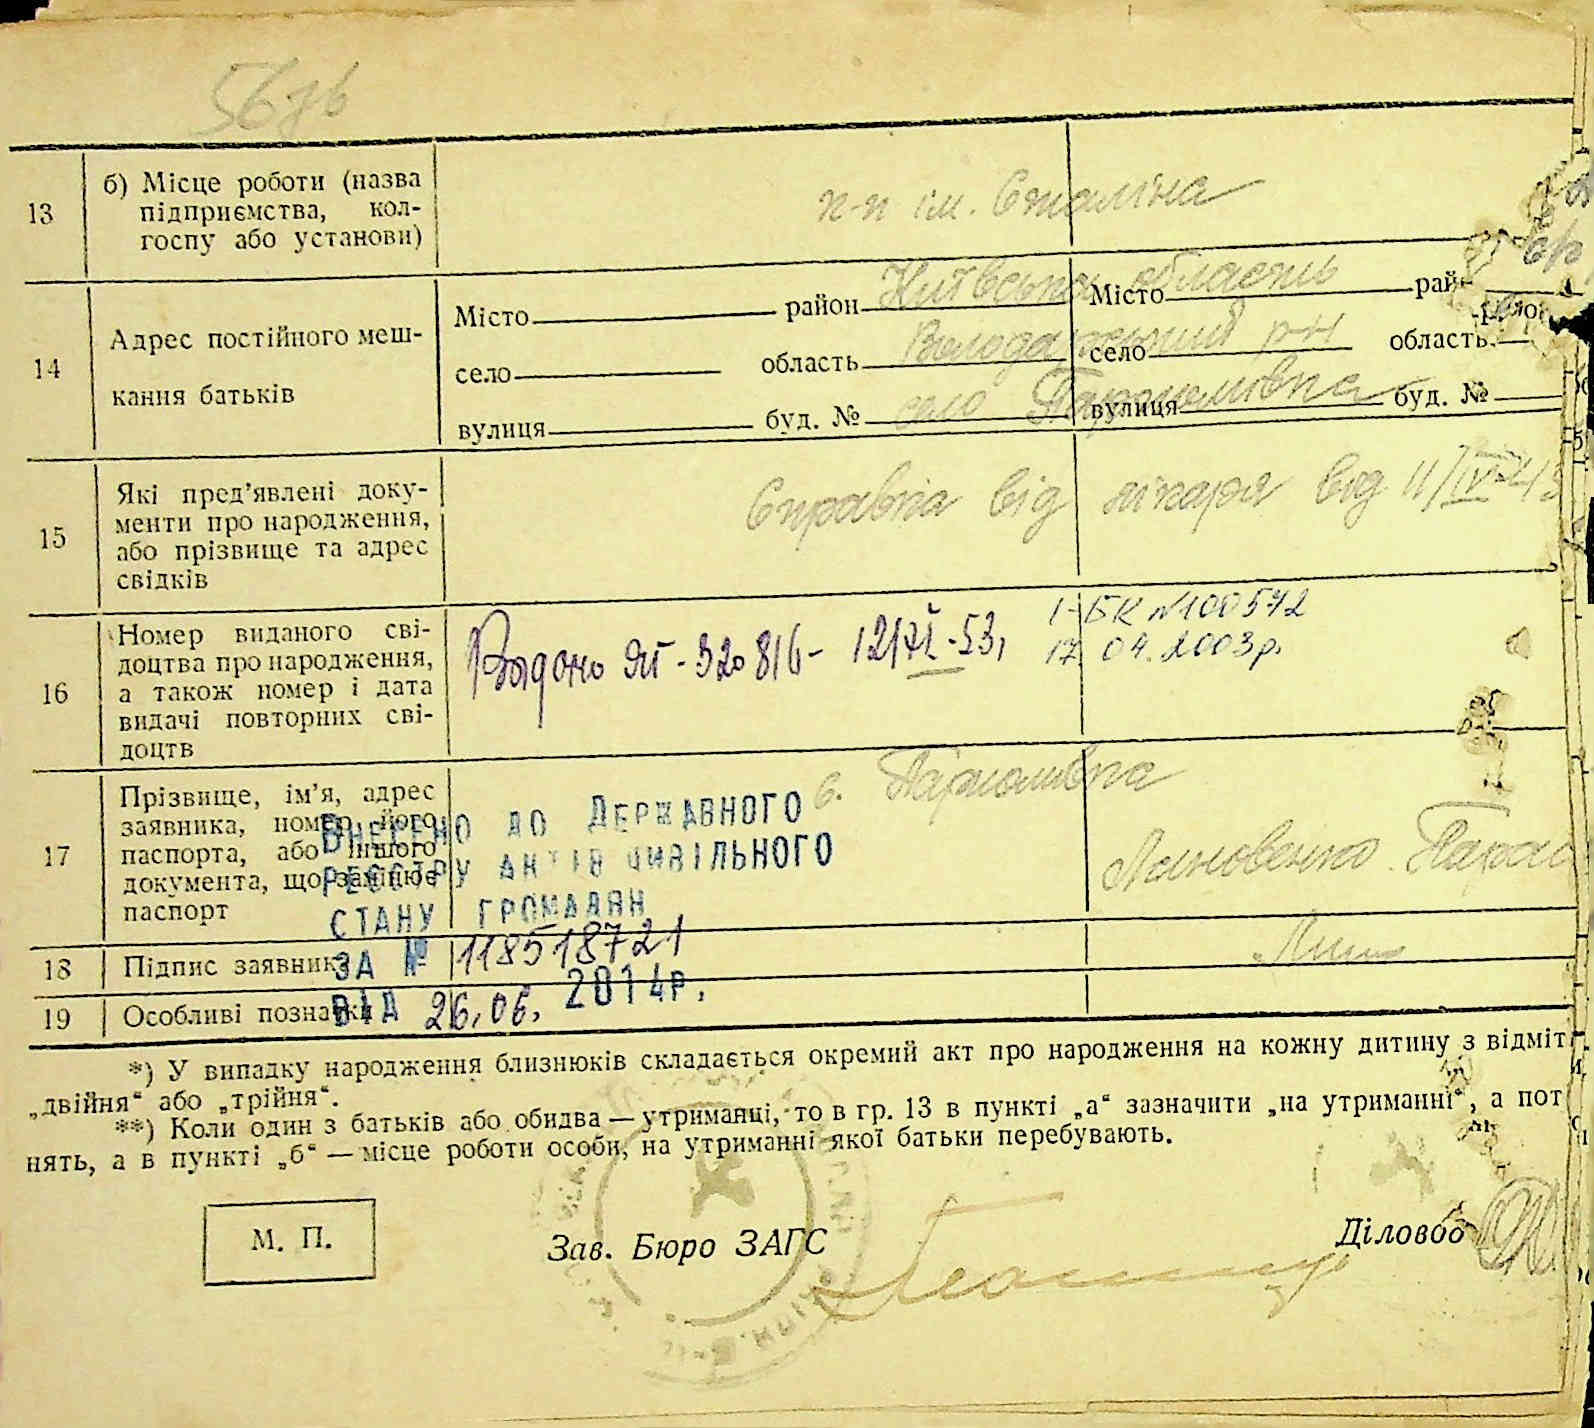 13
б) Місце роботи (назва
підприємства, кол-
госпу або установи)
к-п ім. Сталіна
14
Адрес постійного меш-
кання батьків
Місто район
село область
вулиця буд. №
Місто рай
село область
вулиця буд. №
Київська область
р-н
село Пархомівка
15
Які пред'явлені доку-
менти про народження,
або прізвище та адрес
свідків
Справка від лікаря від 11/IV-43
16
Номер виданого сві-
доцтва про народження,
а також номер і дата
видачі повторних сві-
доцтв
Видано ЯГ-320816-
I-БК №100572
17 04.2003р.
17
Прізвище, ім'я, адрес
заявника, номер його
паспорта, або іншого
документа, що замінює
паспорт
с. Пархомівка
ВНЕСЕНО ДО ДЕРЖАВНОГО
РЕЄСТРУ АКТІВ ЦИВІЛЬНОГО
СТАНУ ГРОМАДЯН
ЗА № 118518721
ВІД 26.06. 2014р.
18
Підпис заявника
19
Особливі познаки
*) У випадку народження близнюків складається окремий акт про народження на кожну дитину з відміт
„двійня“ або „трійня“.
**) Коли один з батьків або обидва — утриманці, то в гр. 13 в пункті „а“ зазначити „на утриманні“, а пот
нять, а в пункті „б“ — місце роботи особи, на утриманні якої батьки перебувають.
М. П.
Зав. Бюро ЗАГС
Діловод